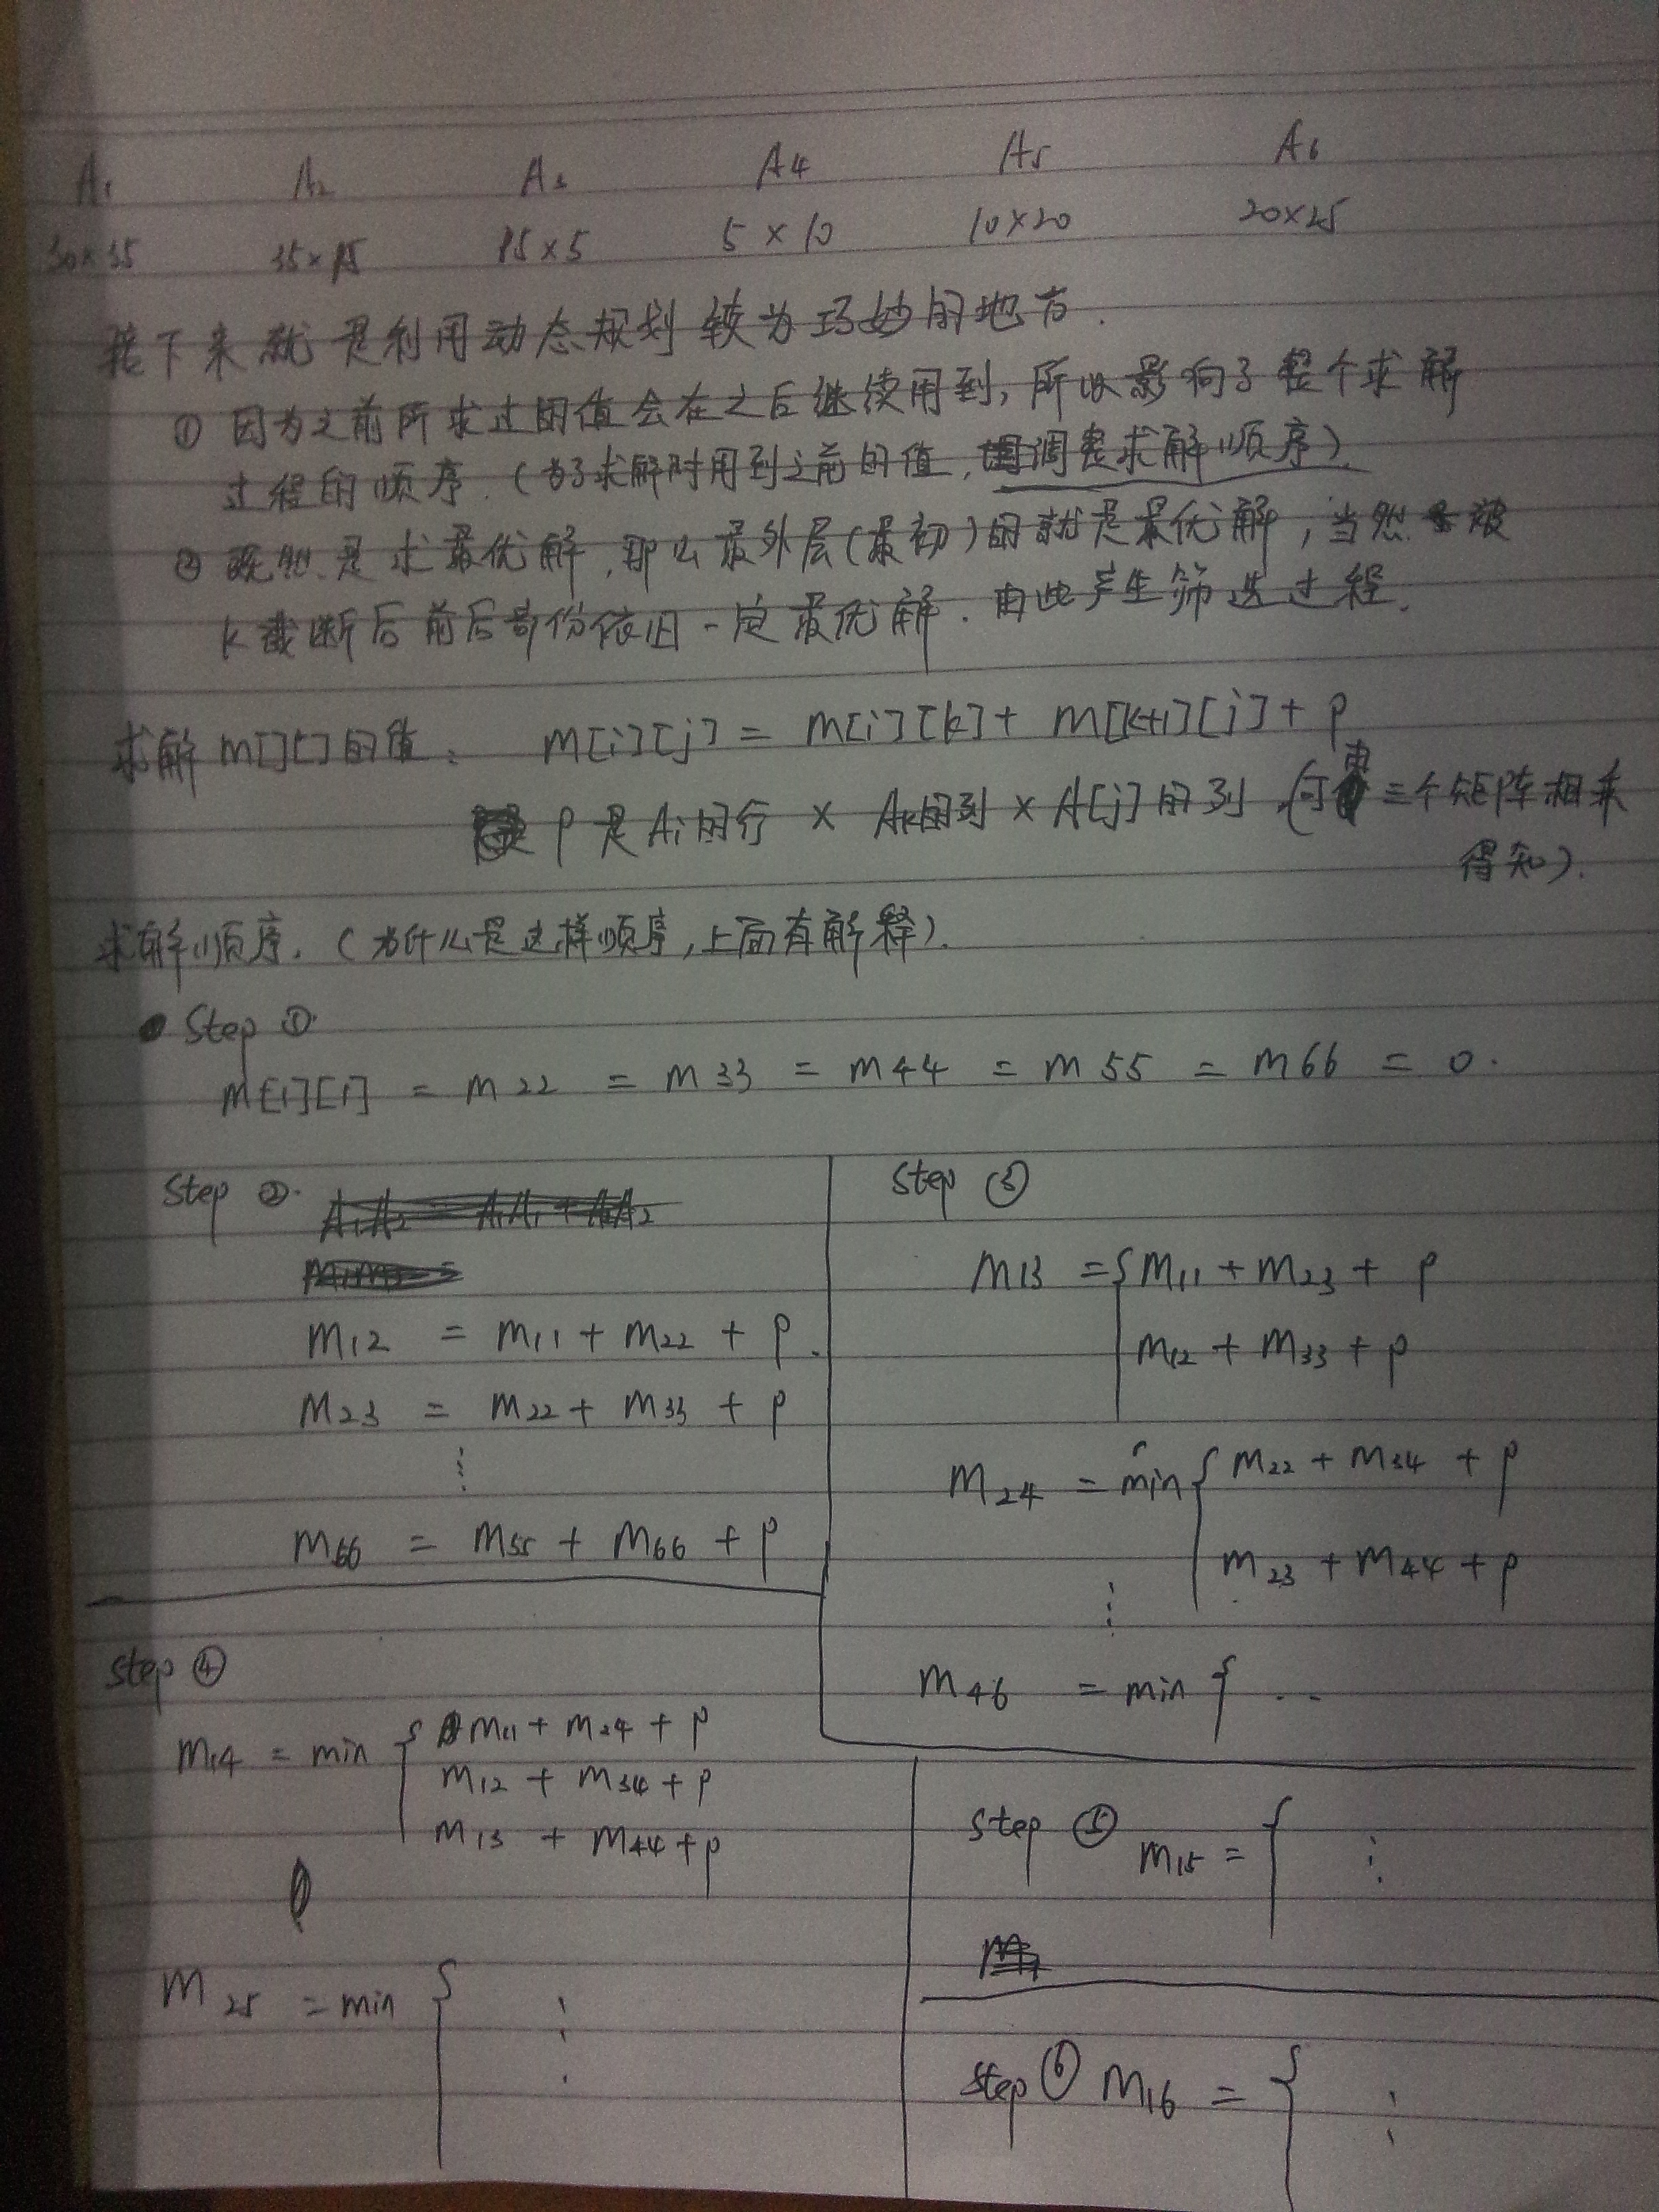 A1 A2 A3 A4 A5 A6
30×35 35×15 15×5 5×10 10×20 20×25
接下来就是利用动态规划较为巧妙的地方.
① 因为之前所求过的值会在之后继续用到, 所以影响了整个求解
过程的顺序. (为了求解时用到之前的值, 调整求解顺序).
② 既然是求最优解, 那么最外层(最初)的就是最优解, 当然被
k截断后前后部份依旧一定最优解. 由此产生筛选过程.
求解m[][]的值: m[i][j] = m[i][k] + m[k+1][j] + p
p是Ai的行 × Ak的列 × A[j]的列, (可由三个矩阵相乘
得知).
求解顺序. (为什么是这样顺序, 上面有解释).
Step ①
m[1][1] = m22 = m33 = m44 = m55 = m66 = 0.
Step ②.
m12 = m11 + m22 + p.
m23 = m22 + m33 + p
⋮
m66 = m55 + m66 + p
Step ③
m13 = { m11 + m23 + p
m12 + m33 + p
m24 = min { m22 + m34 + p
m23 + m44 + p
⋮
m46 = min { ...
Step ④
m14 = min { m11 + m24 + p
m12 + m34 + p
m13 + m44 + p
m25 = min { ⋮
Step ⑤ m15 = { ⋮
Step ⑥ m16 = { ⋮